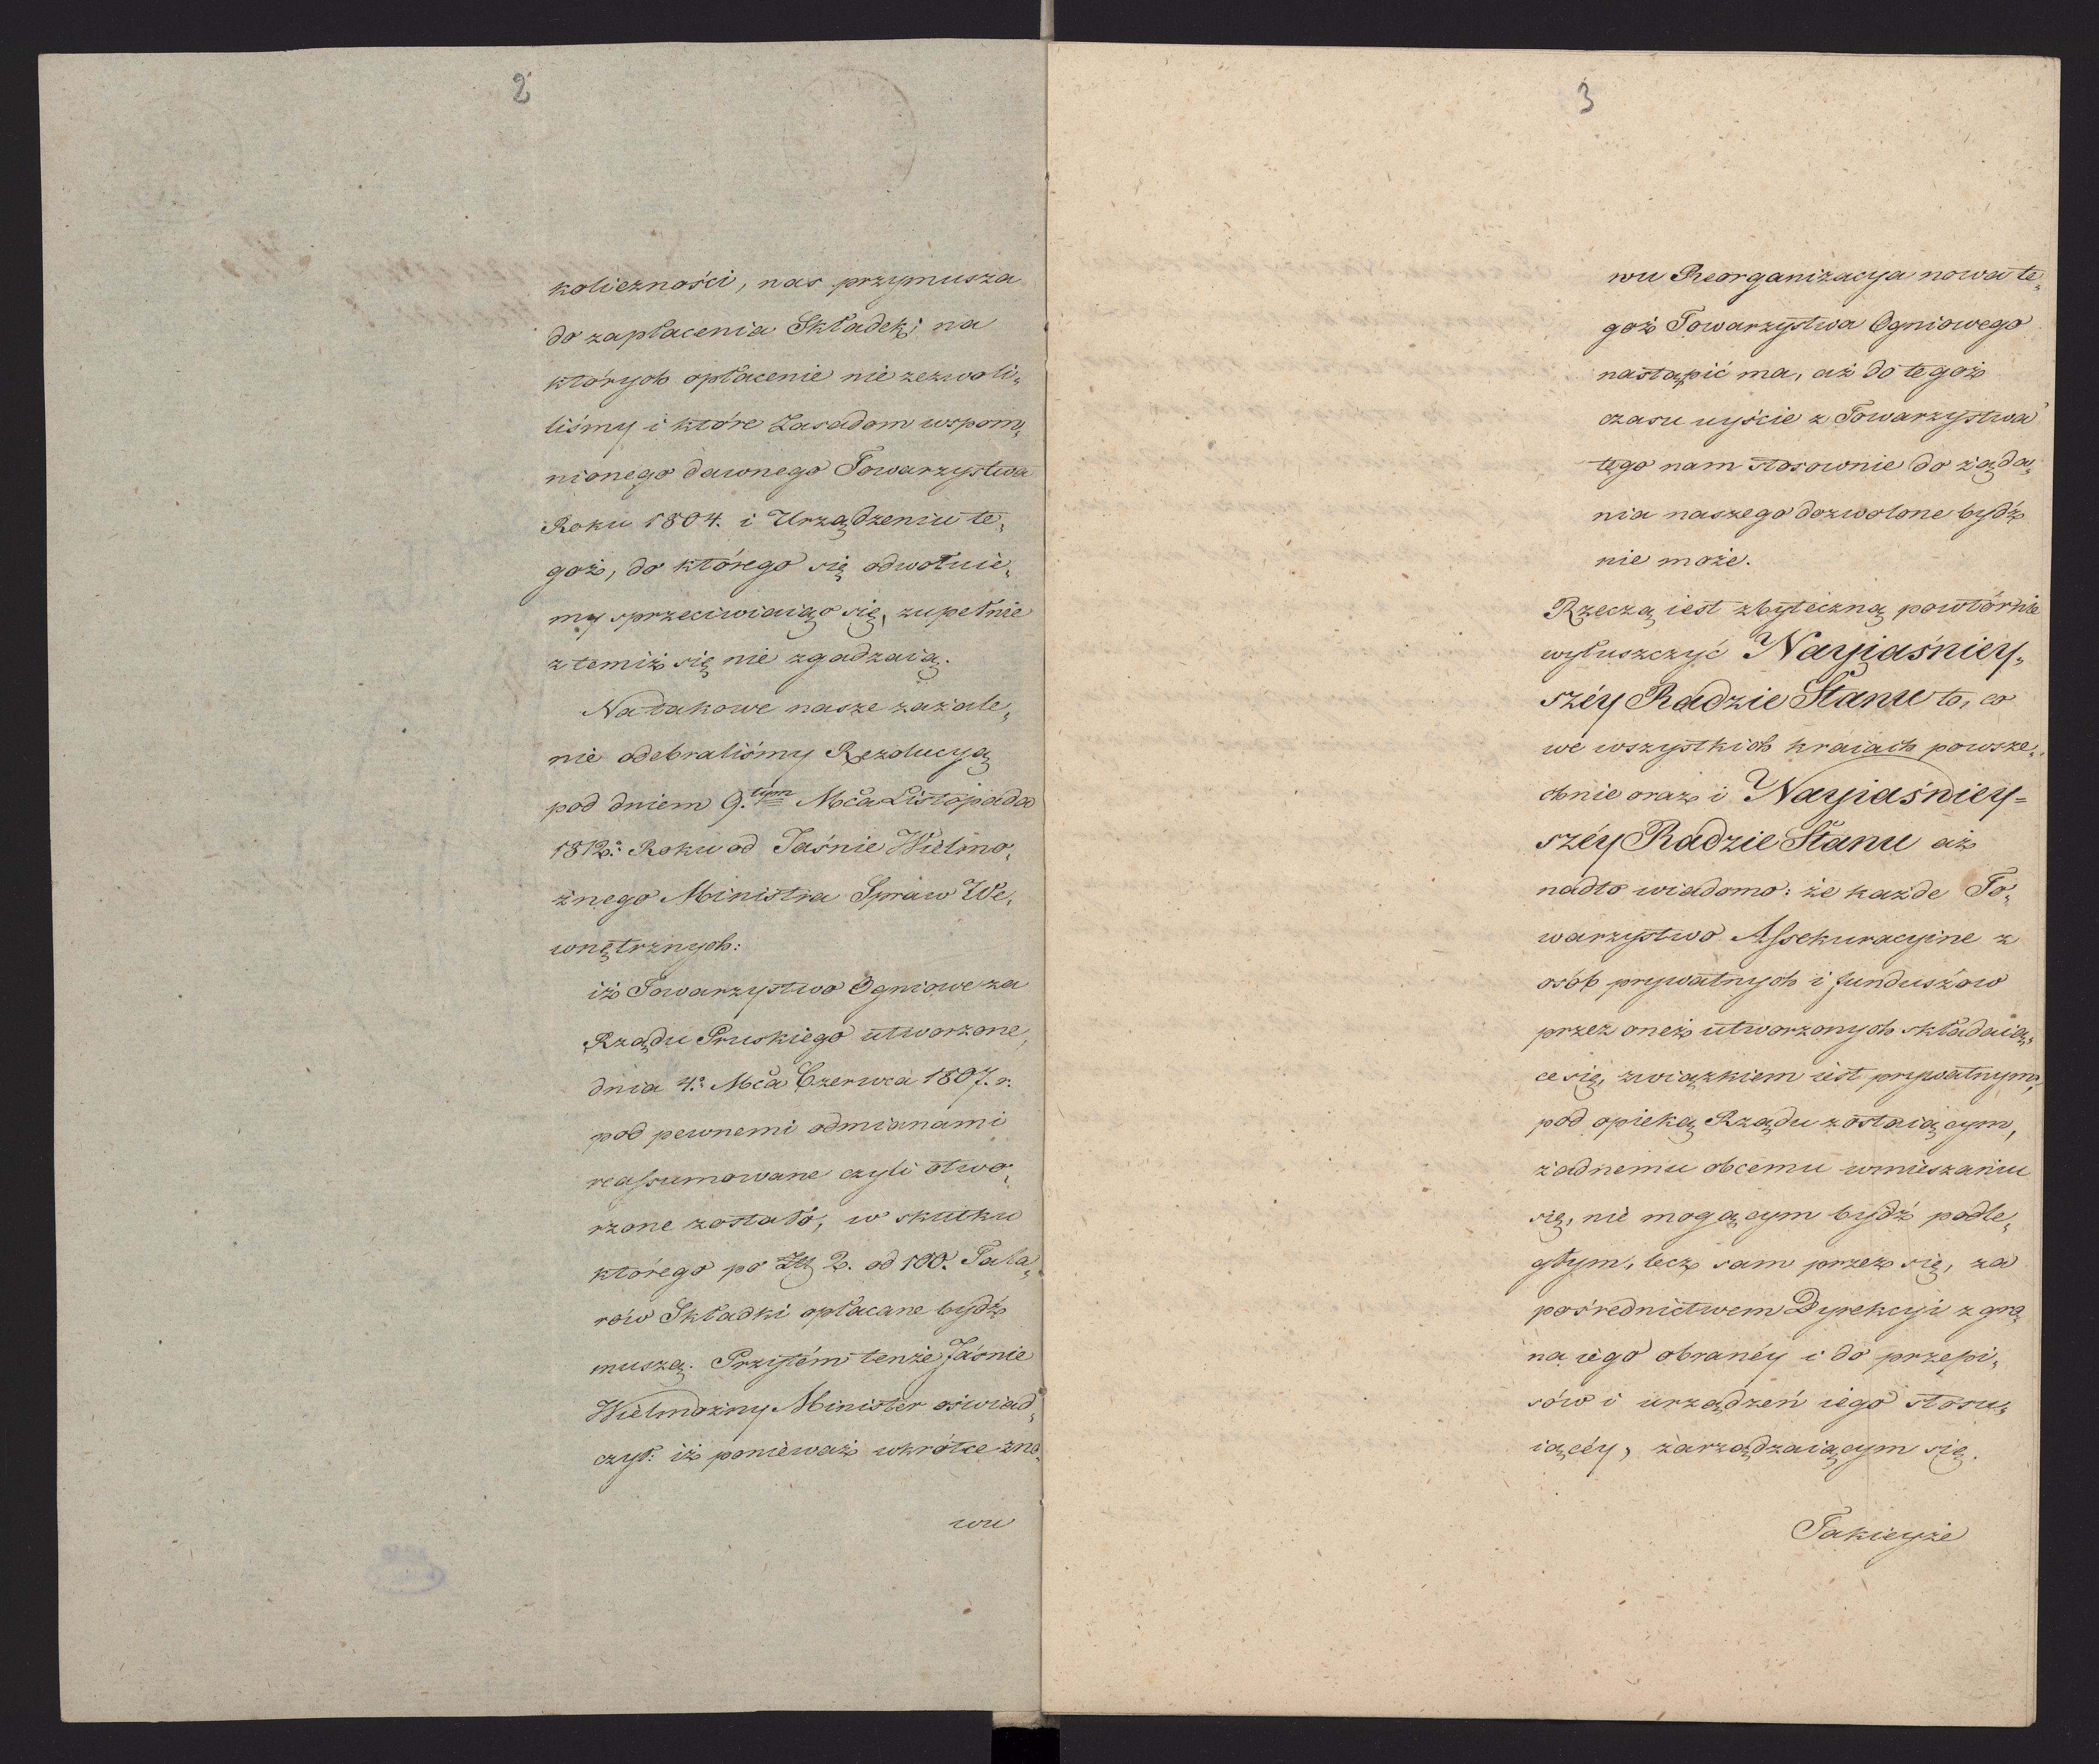 2
koliczności, nas przymusza
do zapłacenia Składek; na
których opłacenie nie zezwoli„
liśmy i które Zasadom wspom„
nionego dawnego Towarzystwa
Roku 1804. i Urządzeniu te„
goż, do którego się odwołuie„
my sprzeciwiaiąc się, zupełnie
z temiż się nie zgadzaią.
Na takowe nasze zażale„
nie odebraliśmy Rezolucyą
pod dniem 9.tym Mca Listopada
1812.º Roku od Jaśnie Wielmo„
żnego Ministra Spraw We„
wnętrznych:
iż Towarzystwo Ogniowe za
Rządu Pruskiego utworzone,
dnia 4.º Mca Czerwca 1807. r.
pod pewnemi odmianami
reassumowane czyli otwo„
rzone zostało, w skutku
którego po Zł 2. od 100. Tala„
rów Składki opłacane bydź
muszą. Przytém tenże Jaśnie
Wielmożny Minister oświad„
czył: iż ponieważ wkrótce zno„
wu
3
wu Reorganizacya nowa te„
goż Towarzystwa Ogniowego
nastąpić ma, aż do tegoż
czasu uyście z Towarzystwa
tego nam stosownie do żąda„
nia naszego dozwolone bydź
nie może.
Rzeczą iest zbyteczną powtórnie
wyłuszczyć Nayiaśniey„
széy Radzie Stanu to, co
we wszystkich kraiach powsze„
chnie oraz i Nayiaśniey=
széy Radzie Stanu aż
nadto wiadomo: że każde To„
warzystwo Assekuracyine z
osób prywatnych i funduszów
przez oneż utworzonych składaią„
ce się, związkiem iest prywatnym,
pod opieką Rządu zostaiącym,
żadnemu obcemu wmieszaniu
się, nie mogącym bydź podle„
głym, lecz sam przez się, za
pośrednictwem Dyrekcyi z gro
na iego obranéy i do przepi„
sów i urządzeń iego stosu„
iącéy, zarządzaiącym się.
Takieyże